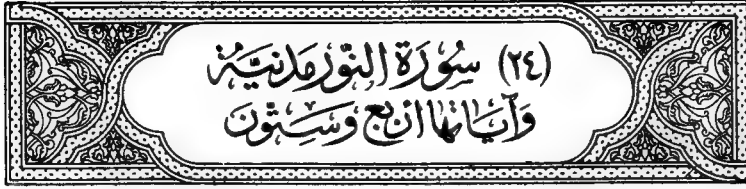 (٢٤) سُورَة النّورْ مَدنيَّة
وَآيَاتهَا ارْبَع وَسِتّونَ